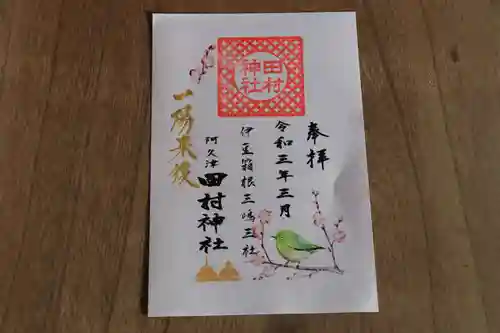 奉拝
令和三年三月
田村
神社
伊豆箱根三嶋三社
阿久津
田村神社
一陽来復